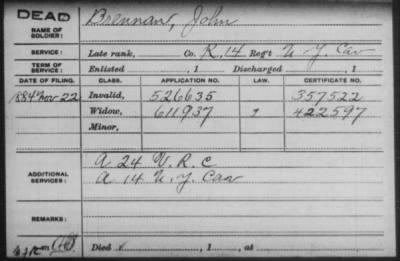 DEAD
NAME OF SOLDIER: Brennan, John
SERVICE: Late rank, Co. K, 14 Reg't N. Y. Cav
TERM OF SERVICE: Enlisted , 1 Discharged , 1
DATE OF FILING. CLASS. APPLICATION NO. LAW. CERTIFICATE NO.
1884 Nov 22 Invalid, 526635 357522
Widow, 611937 422597
Minor,
ADDITIONAL SERVICES: A 24 V. R. C
A 14 N. Y. Cav
REMARKS:
Died , 1 , at